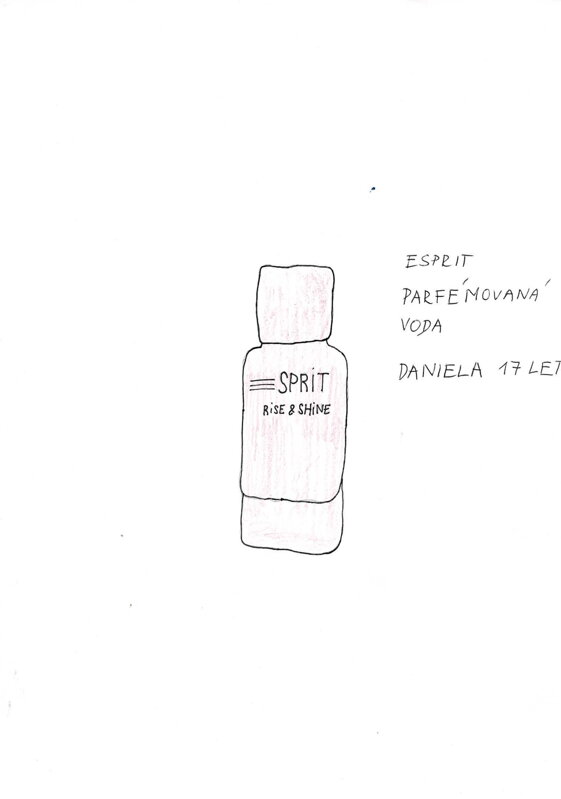 ESPRIT
PARFÉMOVANÁ
VODA
DANIELA 17 LET
ESPRIT
RiSE & SHiNE